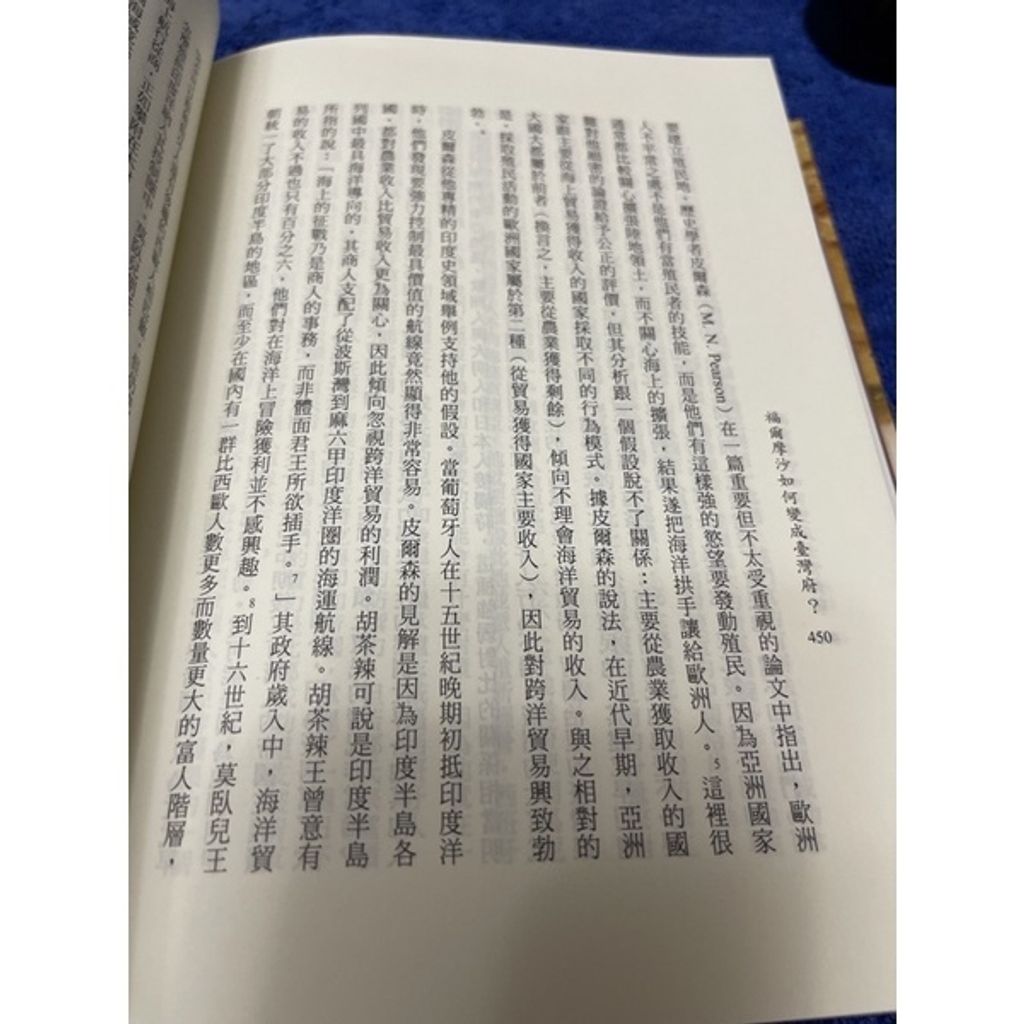 福爾摩沙如何變成臺灣府? 450
要建立殖民地。歷史學者皮爾森(M. N. Pearson)在一篇重要但不太受重視的論文中指出,歐洲
人不平常之處不是他們有當殖民者的技能,而是他們有這樣強的慾望要發動殖民。因為亞洲國家
通常都比較關心擴張陸地領土,而不關心海上的擴張,結果遂把海洋拱手讓給歐洲人。5 這裡很
難對他縝密的論證給予公正的評價,但其分析跟一個假設脫不了關係:主要從農業獲取收入的國
家跟主要從海上貿易獲得收入的國家採取不同的行為模式。據皮爾森的說法,在近代早期,亞洲
大國大都屬於前者(換言之,主要從農業獲得剩餘),傾向不理會海洋貿易的收入。與之相對的
是,採取殖民活動的歐洲國家屬於第二種(從貿易獲得國家主要收入),因此對跨洋貿易興致勃
勃。
皮爾森從他專精的印度史領域舉例支持他的假設。當葡萄牙人在十五世紀晚期初抵印度洋
時,他們發現要強力控制最具價值的航線竟然顯得非常容易。皮爾森的見解是因為印度半島各
國,都對農業收入比貿易收入更為關心,因此傾向忽視跨洋貿易的利潤。胡茶辣可說是印度半島
列國中最具海洋導向的,其商人支配了從波斯灣到麻六甲印度洋圈的海運航線。胡茶辣王曾意有
所指的說:「海上的征戰乃是商人的事務,而非體面君王所欲插手。7」其政府歲入中,海洋貿
易的收入不過也只有百分之六,他們對在海洋上冒險獲利並不感興趣。8 到十六世紀,莫臥兒王
朝統一了大部分印度半島的地區,而至少在國內有一群比西歐人數更多而數量更大的富人階層,